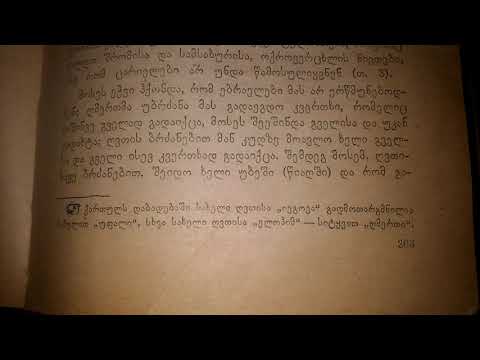 შრომისა და სამსახურისა, ოქროვერცხლის ნივთები,
რომ ცარიელები არ უნდა წამოსულიყვნენ (თ. 3).
მოსეს ეჭვი ჰქონდა, რომ ებრაელები მას არ ერწმუნებოდ-
ნენ; ღმერთმა უბრძანა მას გადაეგდო კვერთხი, რომელიც
გველად გადაიქცა, მოსეს შეეშინდა გველისა და უკან
ღვთის ბრძანებით მან კუდზე მოავლო ხელი გველ-
და გველი ისევ კვერთხად გადაიქცა. შემდეგ მოსემ, ღვთი-
ბრძანებით, შეიდო ხელი უბეში (წიაღში) და რომ გა-
ქართულს დაბადებაში სახელი ღვთისა „იეგოვა“ გადმოთარგმნილია
„უფალი“, სხვა სახელი ღვთისა „ელოჰიმ“ — სიტყვით „ღმერთი“.
203